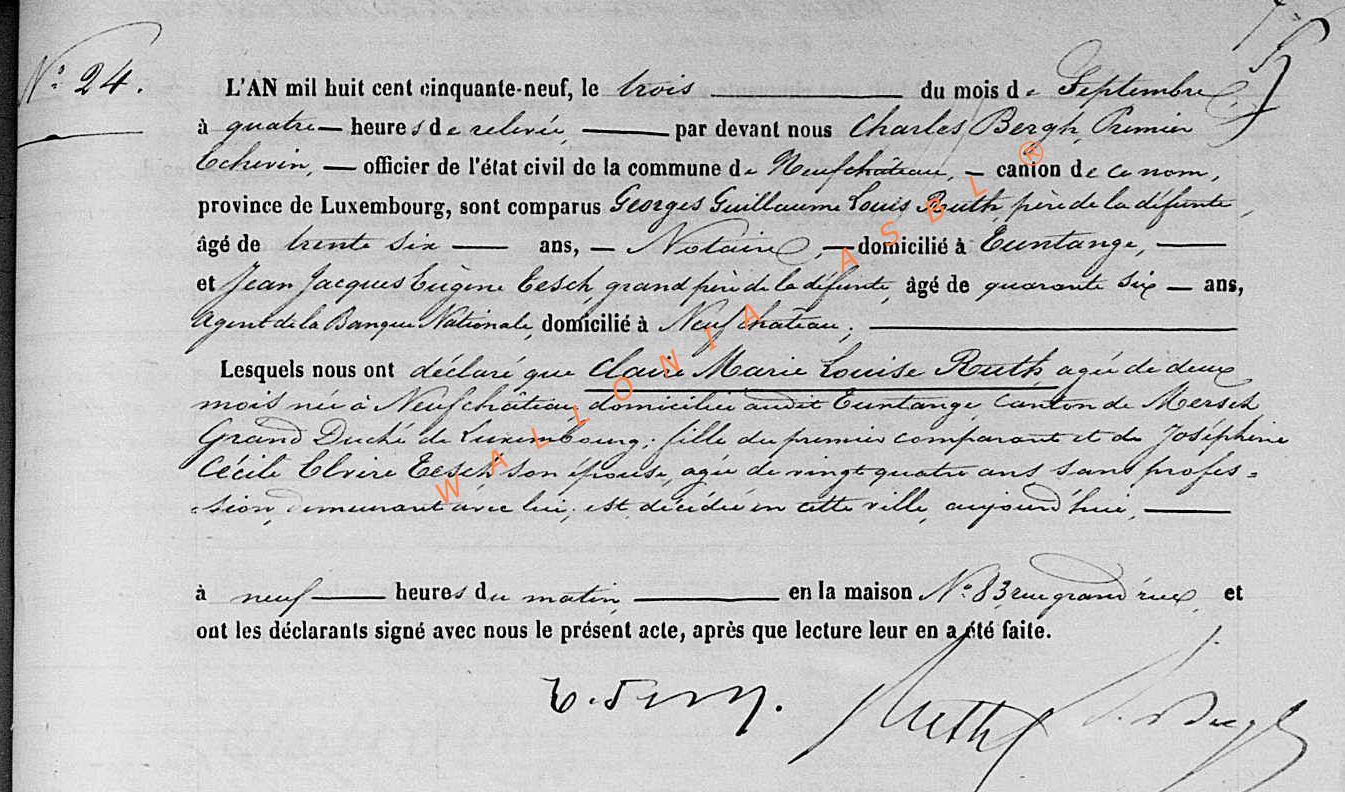 N° 24.
L'AN mil huit cent cinquante-neuf, le trois du mois de Septembre,
à quatre heures de relevée, par devant nous Charles Bergh, Premier
Echevin, officier de l'état civil de la commune de Neufchâteau, canton de ce nom,
province de Luxembourg, sont comparus Georges Guillaume Louis Ruth, père de la défunte,
âgé de trente six ans, Notaire, domicilié à Tuntange,
et Jean Jacques Eugène Tesch, grand père de la défunte, âgé de quarante six ans,
Agent de la Banque Nationale, domicilié à Neufchâteau;
Lesquels nous ont déclaré que Claire Marie Louise Ruth, agée de deux
mois née à Neufchâteau, domiciliée audit Tuntange, canton de Mersch,
Grand Duché de Luxembourg, fille du premier comparant et de Joséphine
Cécile Elvire Tesch son épouse, agée de vingt quatre ans sans profes=
=sion, demeurant avec lui, est décédée en cette ville, aujourd'hui,
à neuf heures du matin, en la maison N° 83, rue grand'rue, et
ont les déclarants signé avec nous le présent acte, après que lecture leur en a été faite.
E. Tesch. Ruth Bergh
WALLONIA ASBL ®